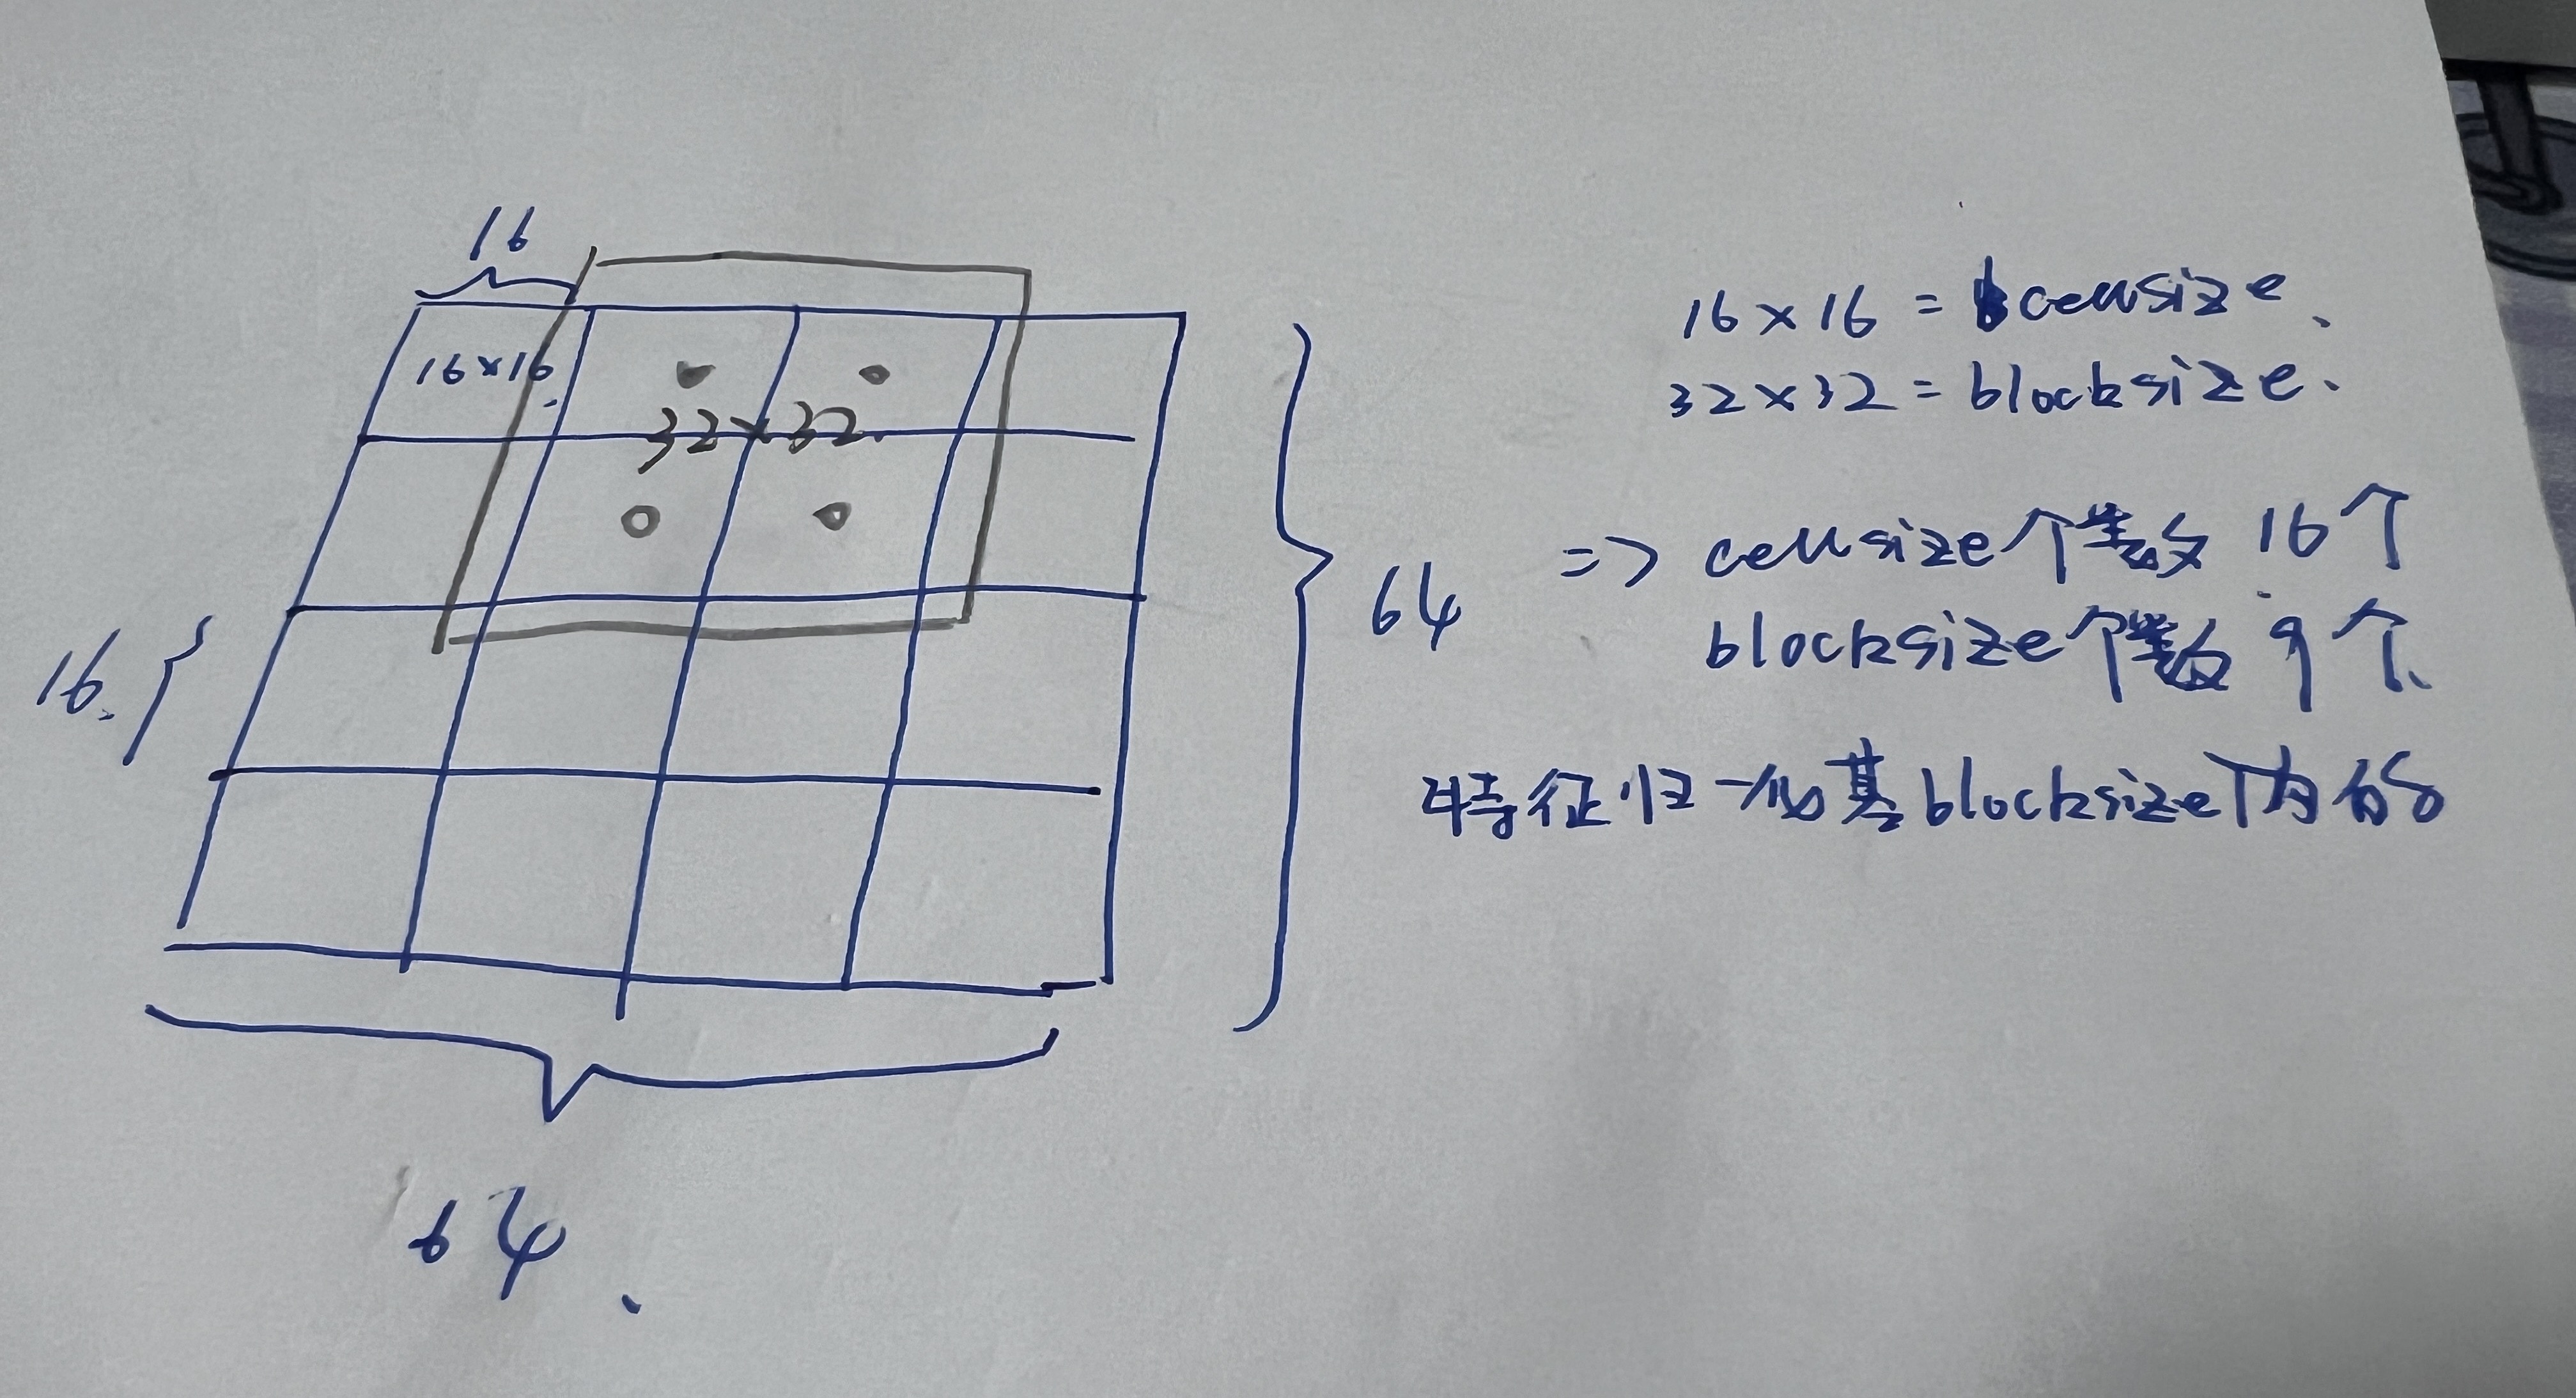 16
16×16
32×32.
16.
64
64
16×16 = cellsize.
32×32 = blocksize.
=> cellsize个数 16个
blocksize个数 9个
特征归一化基blocksize下为的